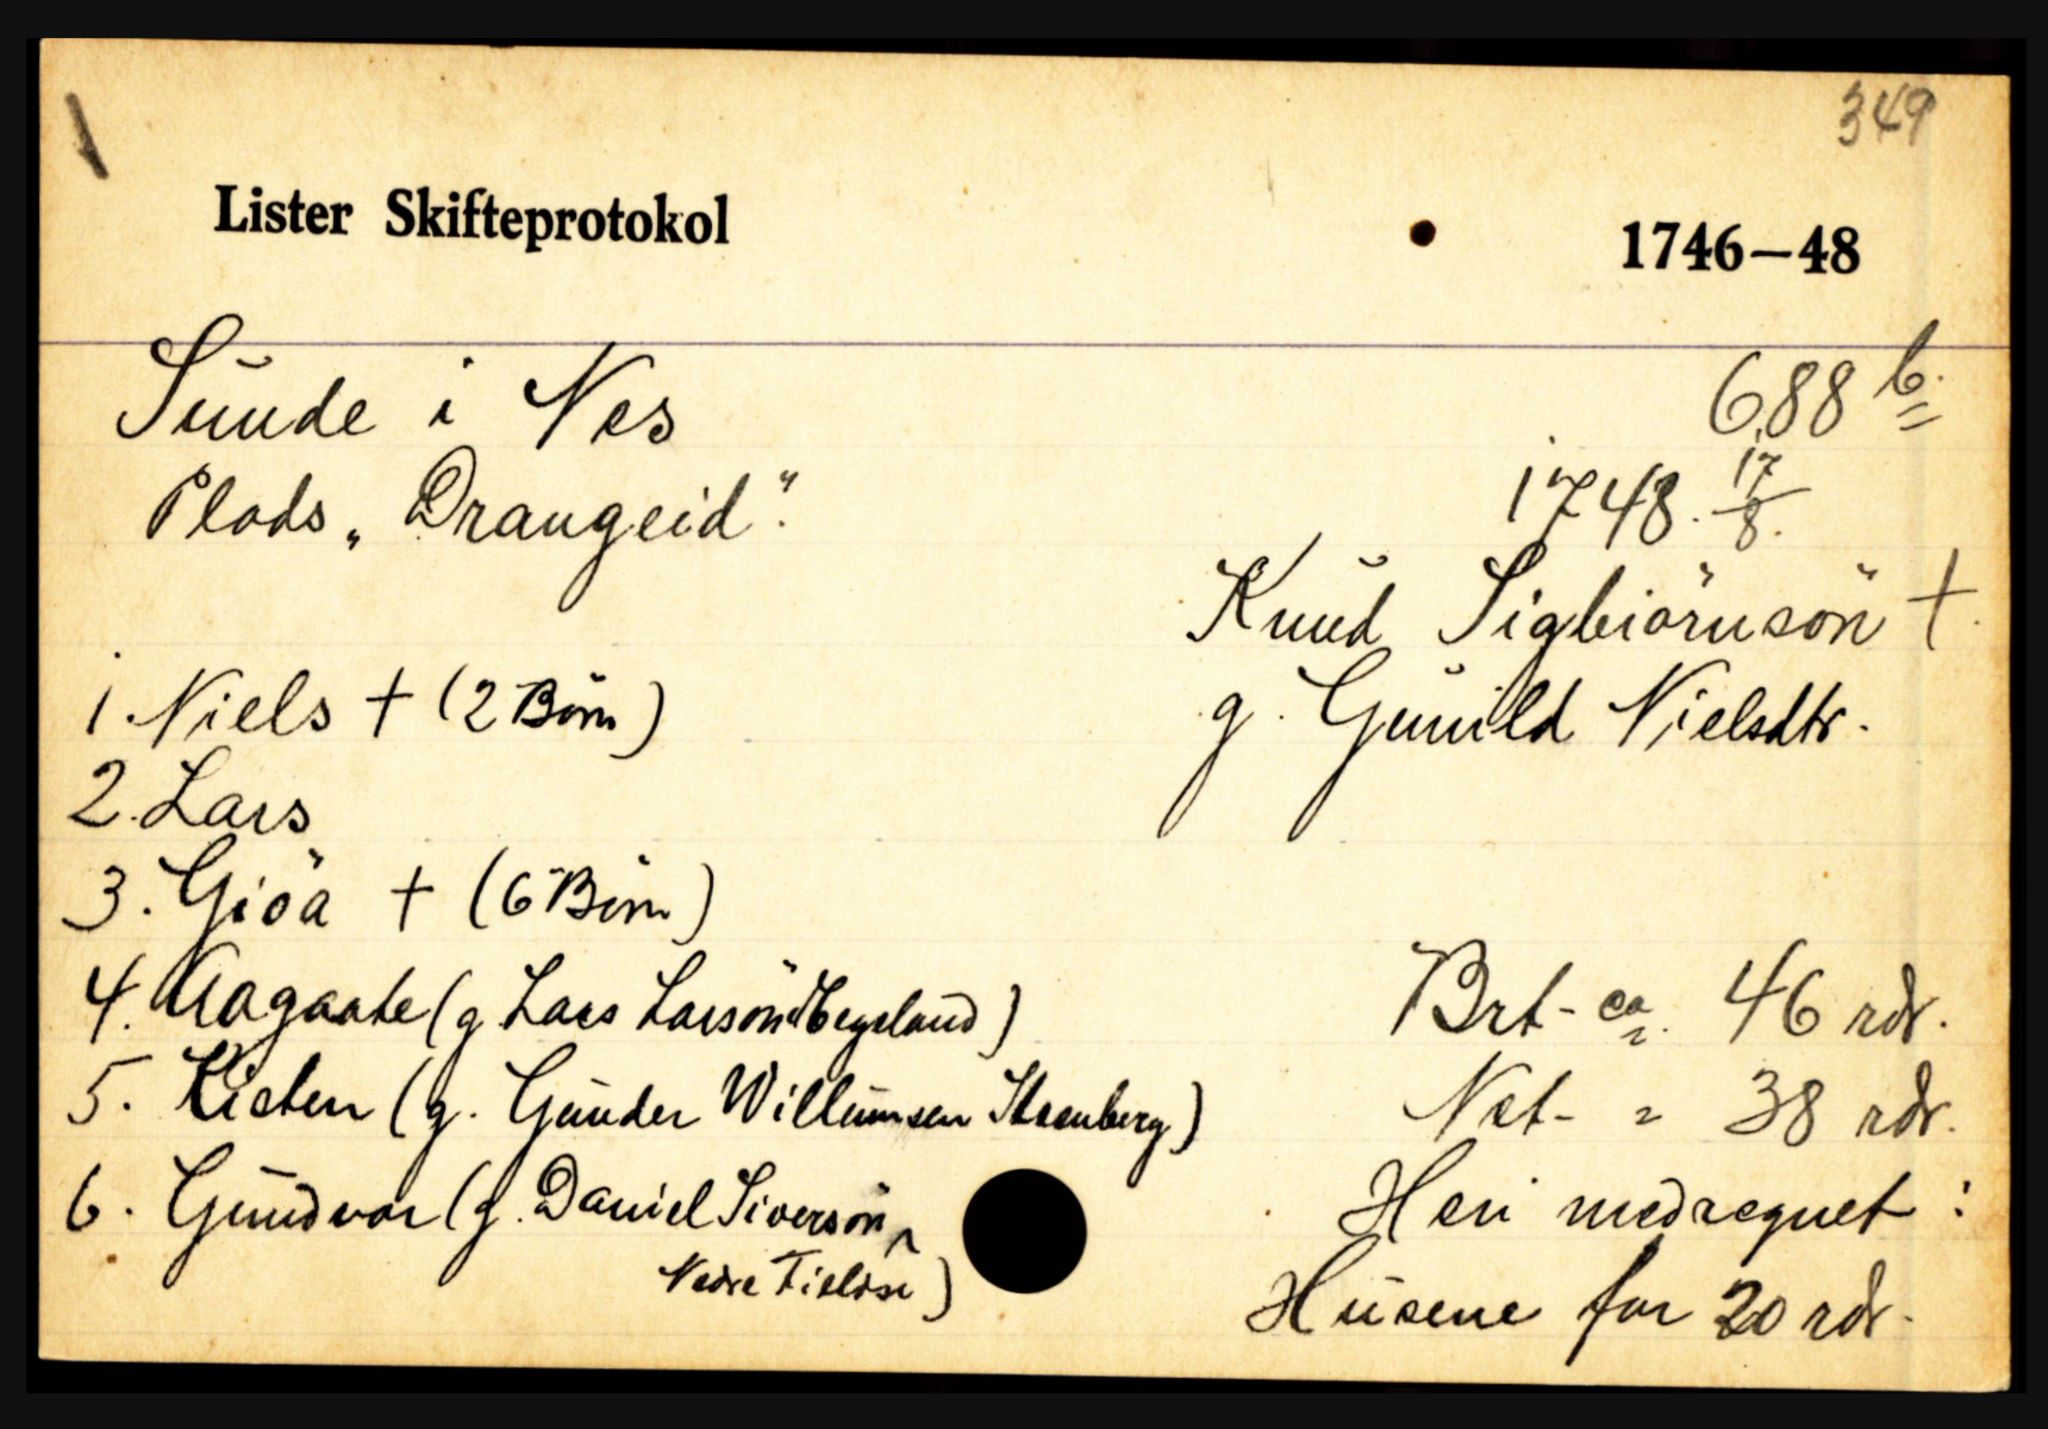 349
Lister Skifteprotokol 1746–48
Sunde i Nes 688 b.
Plads „Drangeid". 1748. 17/8.
Knud Sigbiörnsön †.
1. Niels † (2 Börn) g. Gunild Nielsdtr.
2. Lars
3. Giöa † (6 Börn)
4. Aagaate (g. Lars Larsön Brt- ca. 46 rdr.
5. Kisten (g. Gunder Willumsen Steenberg) Net- " 38 rdr.
6. Gundvor (g. Daniel Siversön, Heri medregnet :
Nedre Fieldse) Husene for 20 rdr.